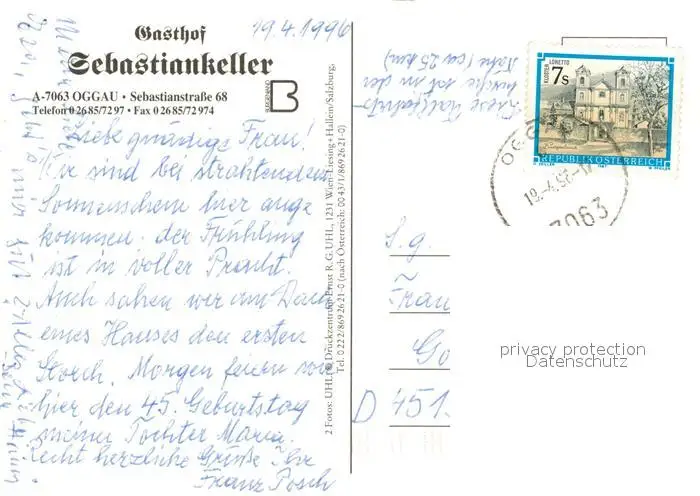 Gasthof
Sebastiankeller
A-7063 OGGAU • Sebastianstraße 68
Telefon 0 26 85/72 97 • Fax 0 26 85/72 974
BURGENLAND
19.4.1996
Liebe gnädige Frau!
Wir sind bei strahlendem
Sonnenschein hier ange
kommen. der Frühling
ist in voller Pracht.
Auch sahen wir am Dach
eines Hauses den ersten
Storch. Morgen feiern wir
hier den 45. Geburtstag
meiner Tochter Maria.
Recht herzliche Grüße Ihr
Franz Posch
2 Fotos: UHL • Druckzentrum Ernst R.G. UHL, 1231 Wien-Liesing + Hallein/Salzburg,
Tel. 0 222/869 26 21-0 (nach Österreich: 00 43/1/869 26 21-0)
Diese Wallfahrts-
kirche ist in der
Nähe (ca 25 km)
7s
KLOSTER LORETTO
REPUBLIK ÖSTERREICH
OGG
19.-4.96
7063
S.g.
Frau
Go
D 451
privacy protection
Datenschutz